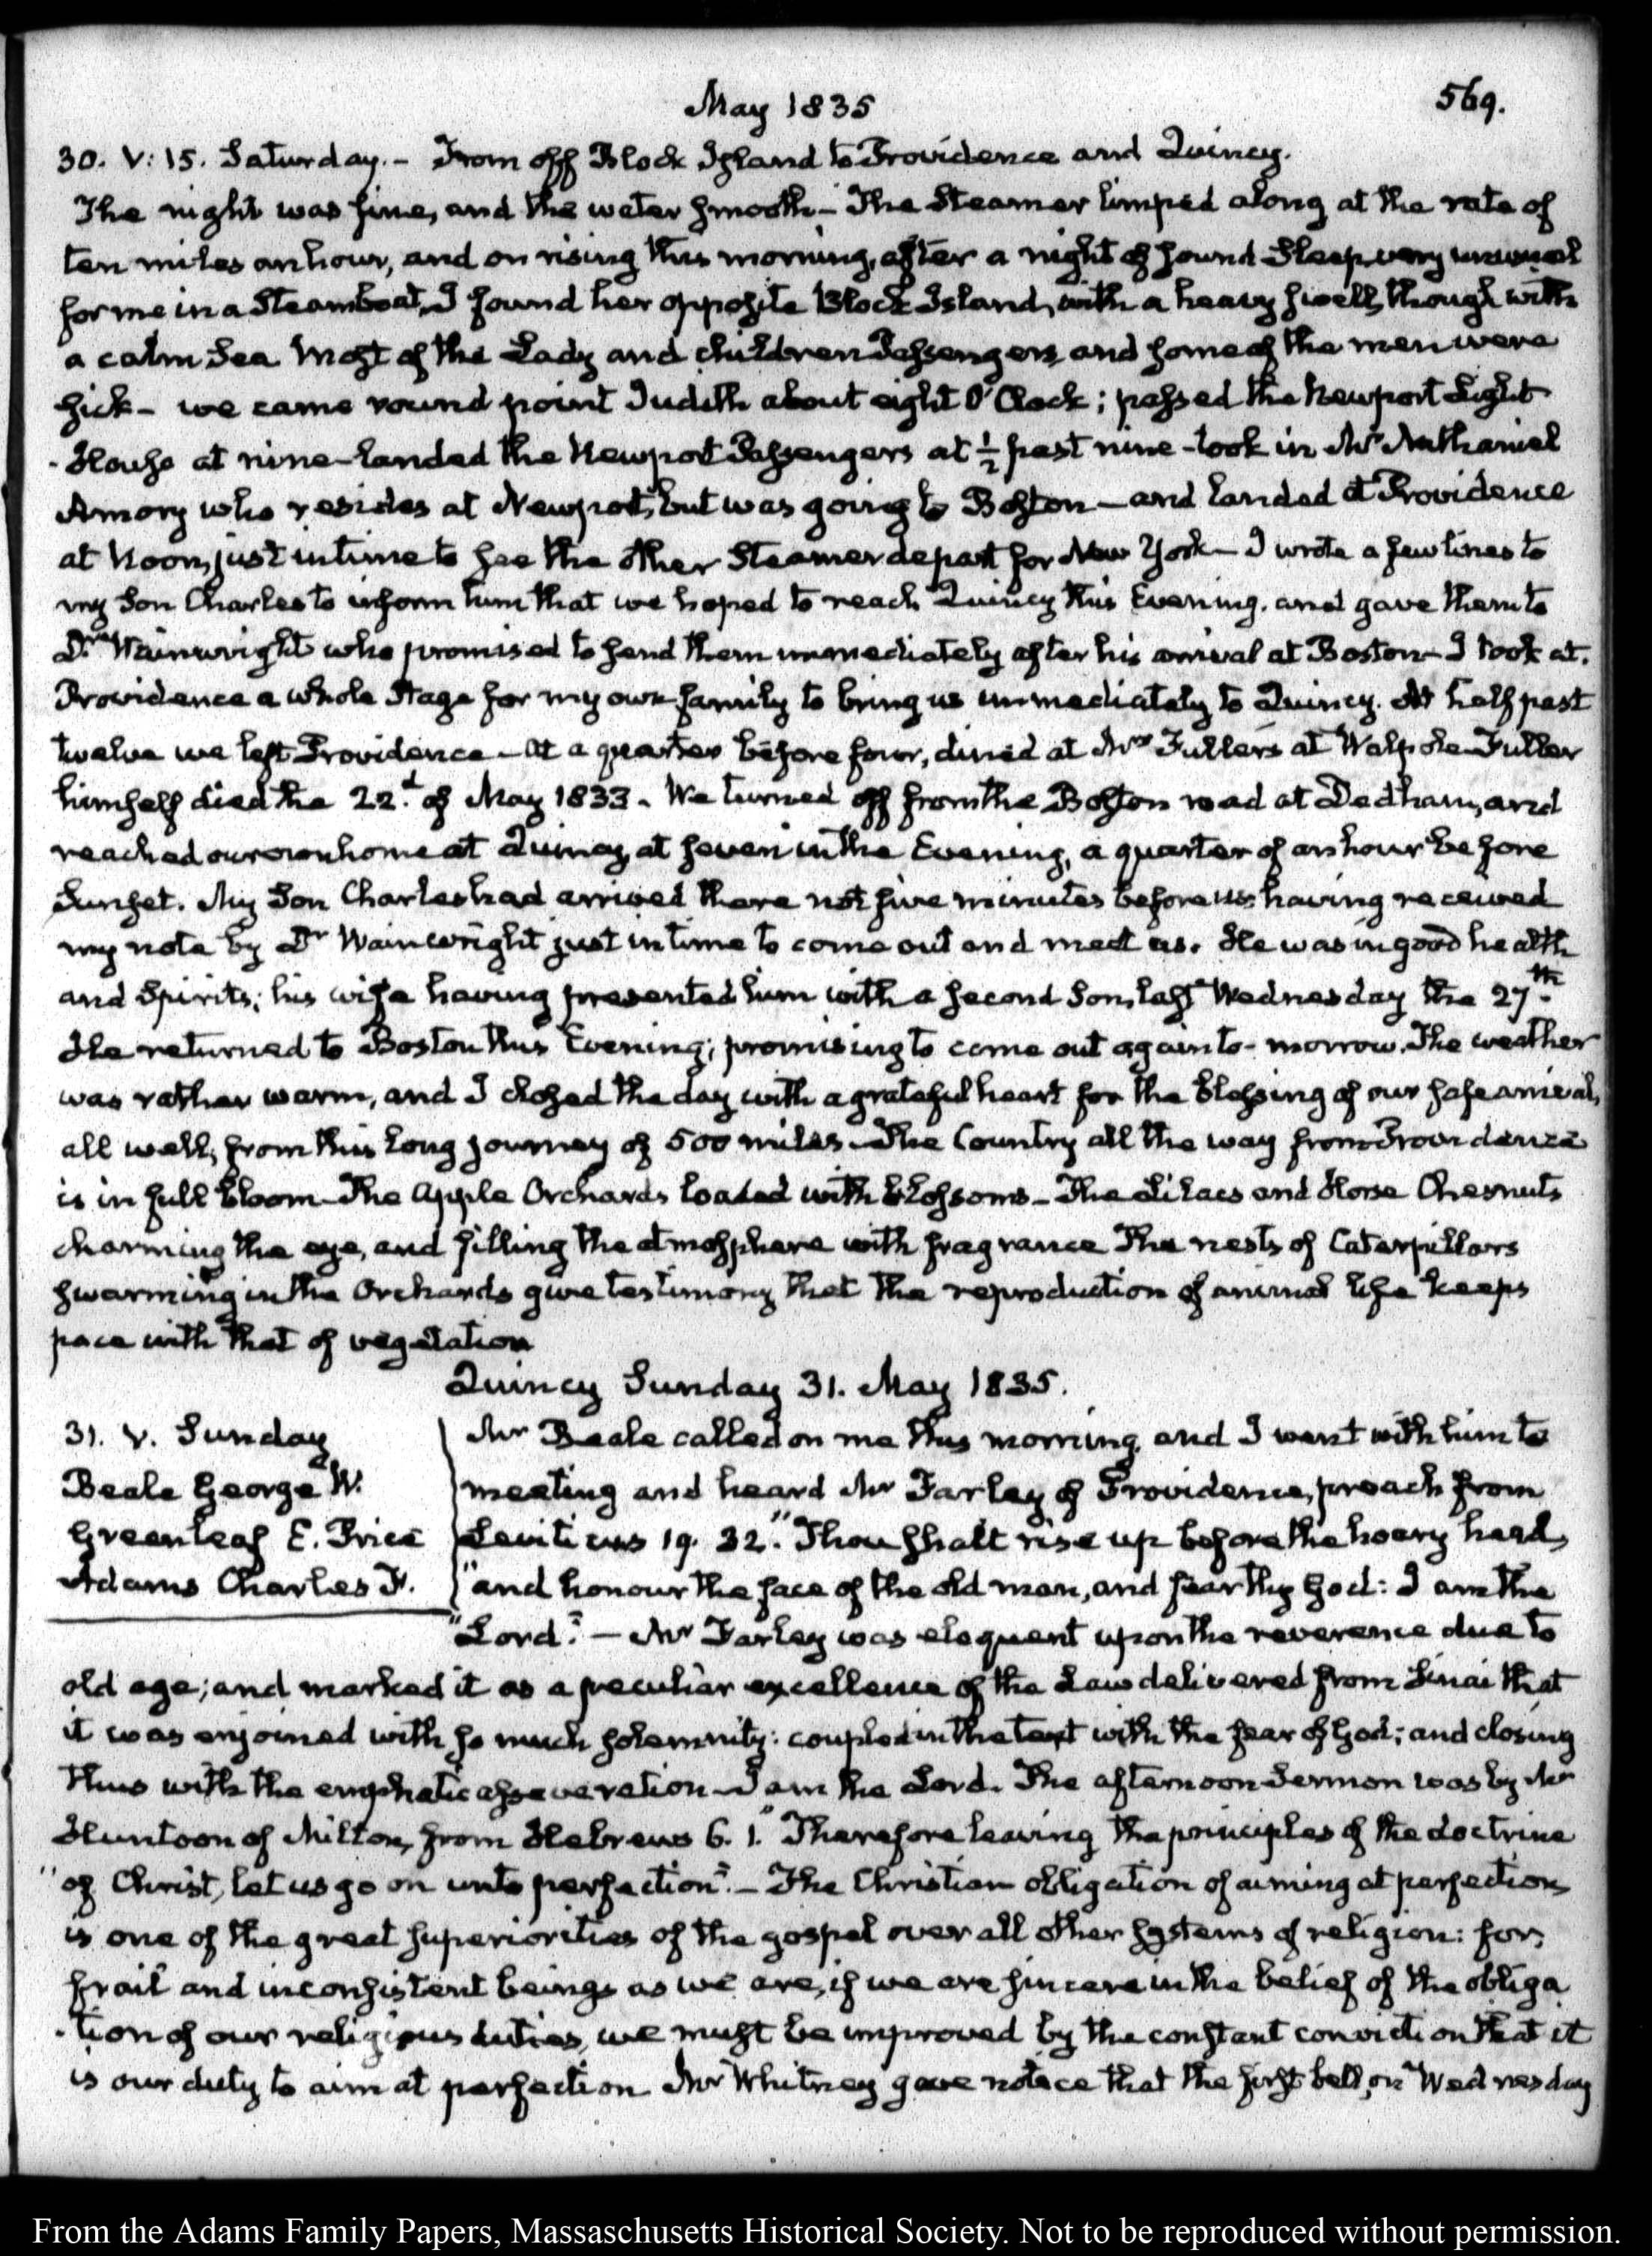 May 1835
569.
30. V: 15. Saturday. - From off Block Island to Providence and Quincy.
The night was fine, and the water smooth - The Steamer limped along at the rate of
ten miles an hour, and on rising this morning, after a night of sound Sleep, very unusual
for me in a Steamboat, I found her opposite Block Island, with a heavy swell, though with
a calm Sea Most of the Lady and children Passengers, and some of the men were
sick - we came round point Judith about eight O'Clock; passed the Newport Light
-House at nine - landed the Newport Passengers at ½ past nine - took in Mr Nathaniel
Amory who resides at Newport, but was going to Boston - and landed at Providence
at Noon, just in time to see the other Steamer depart for New York - I wrote a few lines to
my Son Charles to inform him that we hoped to reach Quincy this Evening, and gave them to
Dr Wainwright who promised to send them immediately after his arrival at Boston - I took at
Providence a whole Stage for my own family to bring us immediately to Quincy. At half past
twelve we left Providence - at a quarter before four, dined at Mrs Fullers at Walpole Fuller
himself died the 22d of May 1833. We turned off from the Boston road at Dedham, and
reached our own home at Quincy, at seven in the Evening, a quarter of an hour before
Sunset. My Son Charles had arrived there not five minutes before us, having received
my note by Dr Wainwright just in time to come out and meet us. He was in good health
and Spirits; his wife having presented him with a second Son, last Wednesday the 27th
He returned to Boston this Evening; promising to come out again to-morrow. The weather
was rather warm, and I closed the day with a grateful heart for the blessing of our safe arrival,
all well, from this long journey of 500 miles - The Country all the way from Providence
is in full bloom - The Apple Orchards loaded with blossoms - The Lilacs and Horse Chesnuts
charming the eye, and filling the atmosphere with fragrance The nests of Caterpillars
swarming in the Orchards give testimony that the reproduction of animal life keeps
pace with that of vegetation
Quincy Sunday 31. May 1835.
31. V. Sunday
Beale George W.
Greenleaf E. Price
Adams Charles F.
Mr Beale called on me this morning and I went with him to
meeting and heard Mr Farley of Providence, preach from
Leviticus 19. 32. "Thou shalt rise up before the hoary head,
"and honour the face of the old man, and fear thy God: I am the
"Lord." - Mr Farley was eloquent upon the reverence due to
old age; and marked it as a peculiar excellence of the Law delivered from Sinai that
it was enjoined with so much solemnity: coupled in the text with the fear of God; and closing
thus with the emphatic asseveration - I am the Lord. The afternoon Sermon was by Mr
Huntoon of Milton, from Hebrews 6. 1. "Therefore leaving the principles of the doctrine
"of Christ, let us go on unto perfection". - The Christian obligation of aiming at perfection
is one of the great superiorities of the gospel over all other systems of religion: for,
frail and inconsistent beings as we are, if we are sincere in the belief of the obliga
-tion of our religious duties, we must be improved by the constant conviction that it
is our duty to aim at perfection Mr Whitney gave notice that the first bell, on Wednesday
From the Adams Family Papers, Massaschusetts Historical Society. Not to be reproduced without permission.